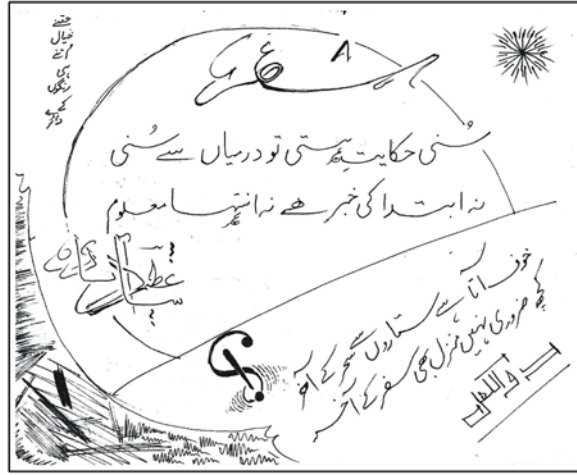 جتنے
خیال
اتنے
ہی
رنگوں
کے
دائرے
سُنی حکایتِ ہستی تو درمیاں سے سُنی
نہ ابتدا کی خبر ہے نہ انتہا معلوم
خوف آتا ہے ستاروں سے سحر کے آخر
کچھ ضروری نہیں منزل بھی سفر کے آخر